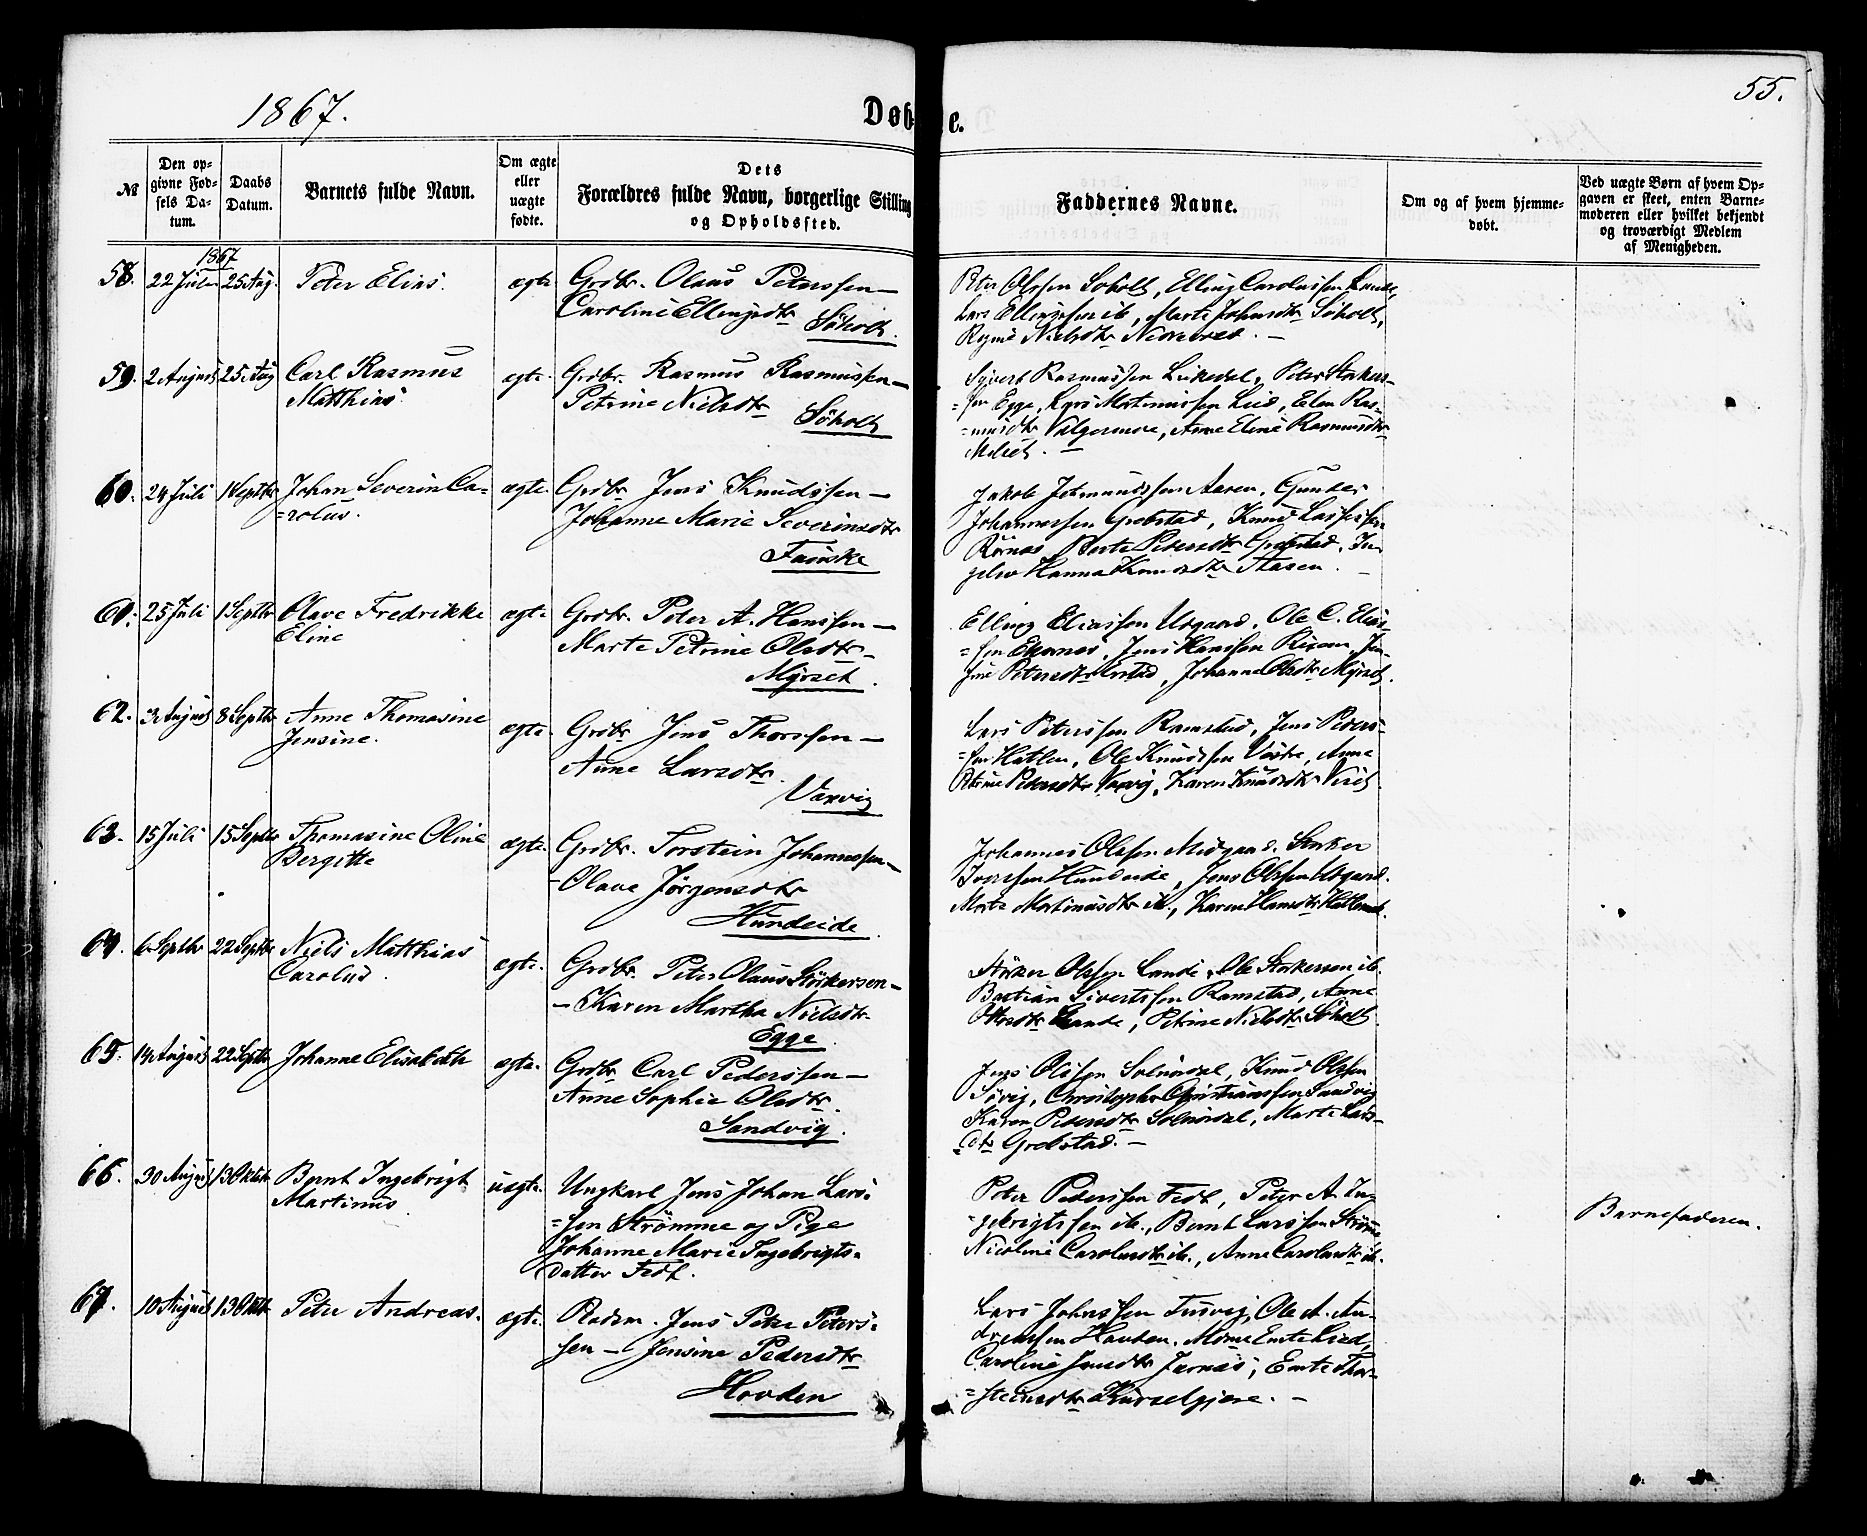 1867.
Døb
e.
55.
№
Den opgivne Fødsels Datum.
Daabs Datum.
Barnets fulde Navn.
Om ægte eller uægte fødte.
Dets Forældres fulde Navn, borgerlige Stilling og Opholdssted.
Faddernes Navne.
Om og af hvem hjemmedøbt.
Ved uægte Børn af hvem Opgaven er skeet, enten Barnemoderen eller hvilket bekjendt og troværdigt Medlem af Menigheden.
1867
58. 22 Juli 25 Aug. Peter Elias. ægte Grdbr. Olaus Peterssen —
Caroline Ellingsdtr
Söholt.
Peter Olssen Söholt, Elling Carolussen Lande,
Lars Ellingssen ib., Marte Johnsdtr Söholt,
Nielsdtr
59. 2 August 25 Aug Carl Rasmus
Matthias
ægte. Grdbr. Rasmus Rasmussen —
Petrine Nielsdtr
Söholt
Syvert Rasmussen, Peter Storkers-
=sen Egge, Lars Martinussen Lied, Elen Ras-
=musdtr Valgermoe, Anne Eline Rasmusdtr
60. 24 Juli 1 Septbr Johan Severin Ca-
=rolus.
ægte. Grdbr Jens Knudssen —
Johanne Marie Severinsdtr
Fauske
Jakob Aasen, Gunder
Johannessen Grebstad, Knud
Berte Pedersdtr Grebstad, In-
Hanna Knudsdtr Aasen.
61. 25 Juli 1 Septbr Olave Fredrikke
Eline
ægte. Grdbr. Peter A. Hanssen —
Marte Petrine Olsdtr
Myrset.
Elling Eliassen Uregaard, Ole C. Elias-
=sen Ekornes, Jens Hanssen, Jen-
sine Petersdtr, Johanna Olsdtr Myrset.
62. 3 August 8 Septbr Anne Thomasine
Jensine.
ægte Grdbr Jens Thorssen —
Anne Larsdtr.
Vaxvig
Lars Peterssen Ramstad, Jens Peders-
=sen Hatlen, Ole Knudssen, Anne
Petrine Pedersdtr Vaxvig, Karen Knudsdtr
63. 15 Juli 15 Septbr Thomasine Oline
Bergitte
ægte. Grdbr. Torstein Johannessen —
— Olave Jørgensdtr
Hundeide.
Johannes Olssen Midgaard, Storker
Iverssen Hundeide, Jens Olssen Uregaard.
Marte Martinusdtr ib., Karen Hansdtr
64. 6 Septbr 22 Septbr Niels Matthias
Carolus.
ægte. Grdbr. Peter Olaus Störkersen —
— Karen Martha Nielsdtr
Egge.
Störker Olssen Lande, Ole Storkersen ib.
Bastian Sivertssen Ramstad, Anne
Lande, Petrine Nielsdtr Söholt
65. 14 August 22 Septbr Johanne Elisabeth ægte. Grdbr Carl Pederssen —
Anne Sophie Olsdtr.
Sandvig.
Jens Olssen Solnördal, Knud Olssen
Sövig, Christopher Christianssen Sandvig
Karen Pedersdtr Solnördal, Marte Lars-
=dtr Grebstad. —
66. 30 August 13 Oktbr Bernt Ingebrigt
Martinus.
uægte. Ungkarl Jens Johan Lars-
=sen Strömme og Pige
Johanne Marie Ingebrigts-
datter Fedt.
Peter Pederssen Fedt, Peter A. In-
gebrigtssen ib., Bernt Larssen Strömme
Nicoline Carolusdtr ib., Anne Carolusdtr ib.
Barnefaderen.
67. 10 August 13 Oktbr Peter Andreas. ægte. Pladsm. Jens Peter Peters-
sen — Jensine Pedersdtr
Hovden
Lars Johnssen, Ole A. An-
dreassen
Caroline Jensdtr, Thor-
=steinsdtr